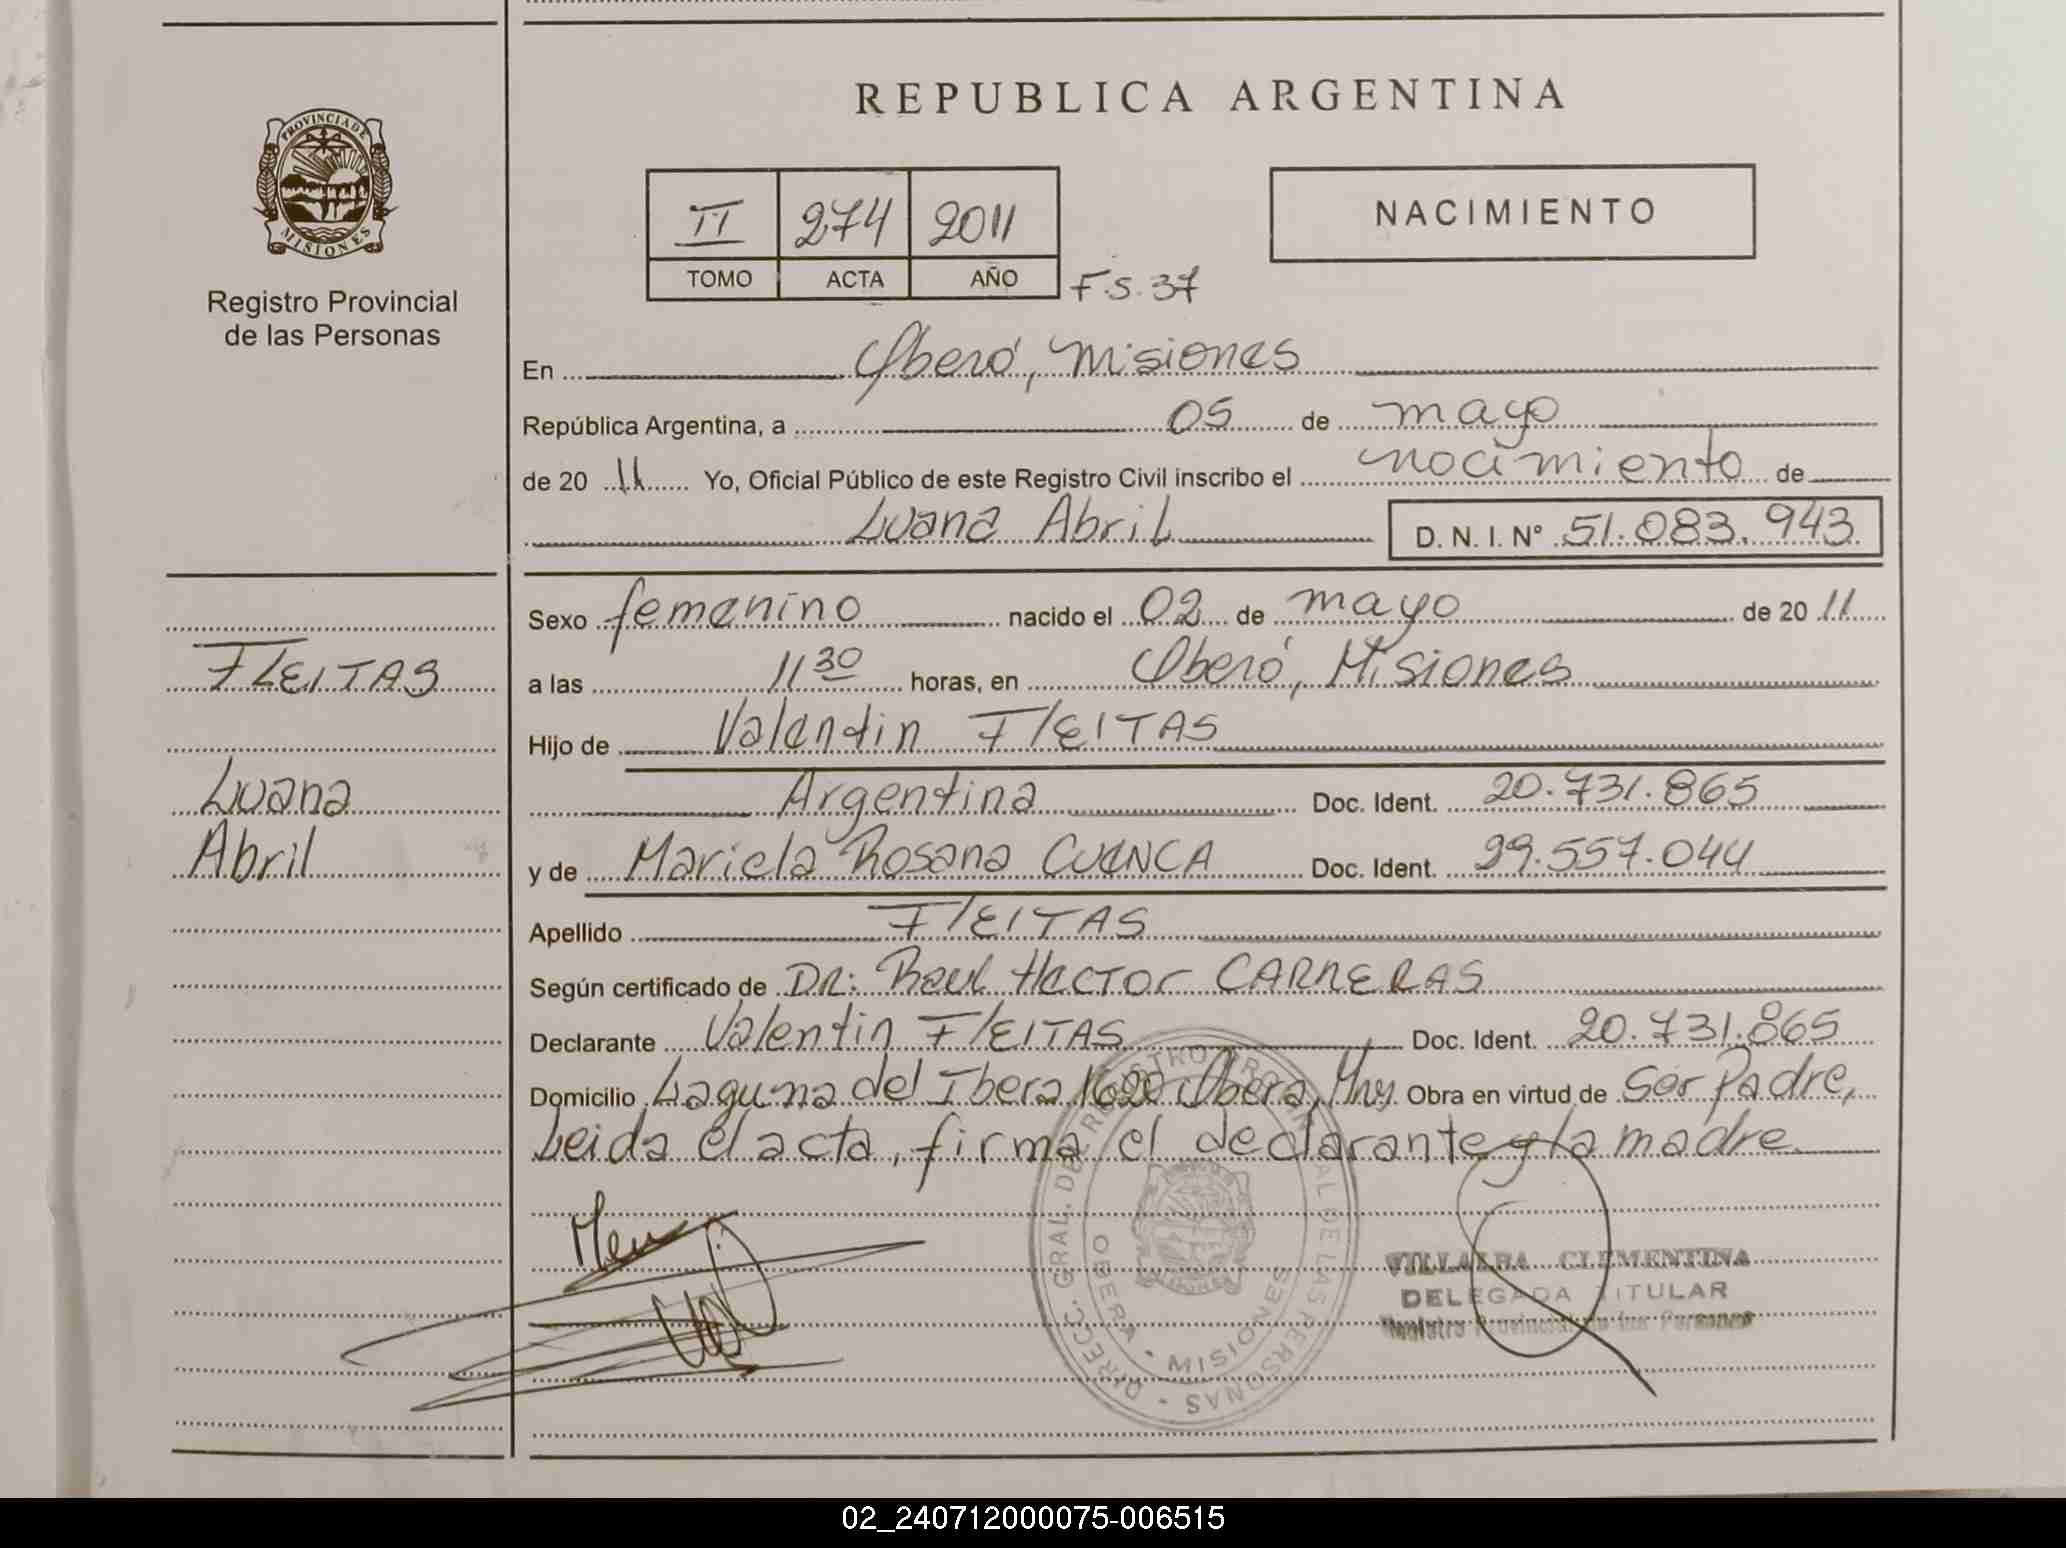 REPUBLICA ARGENTINA
PROVINCIA DE
MISIONES
Registro Provincial
de las Personas
II 274 2011
TOMO ACTA AÑO
F.S. 37
NACIMIENTO
En Oberó, Misiones
República Argentina, a 05 de mayo
de 20 11 Yo, Oficial Público de este Registro Civil inscribo el nacimiento de
Luana Abril D. N. I. N° 51.083.943
Sexo femenino nacido el 02 de mayo de 20 11
FLEITAS
a las 11 30 horas, en Oberó, Misiones
Hijo de Valentin FLEITAS
Luana
Argentina Doc. Ident. 20.731.865
Abril
y de Mariela Rosana CUENCA Doc. Ident. 29.557.044
Apellido FLEITAS
Según certificado de DR: Raul Hector CARRERAS
Declarante Valentin FLEITAS Doc. Ident. 20.731.865
Domicilio Laguna del Ibera 1620 Obera, Mns Obra en virtud de Ser Padre,
Leida el acta, firma el declarante y la madre
DIRECC. GRAL. DEL REGISTRO PROVINCIAL DE LAS PERSONAS
OBERA - MISIONES
VILLALBA CLEMENTINA
DELEGADA TITULAR
Registro Provincial de las Personas
02_240712000075-006515